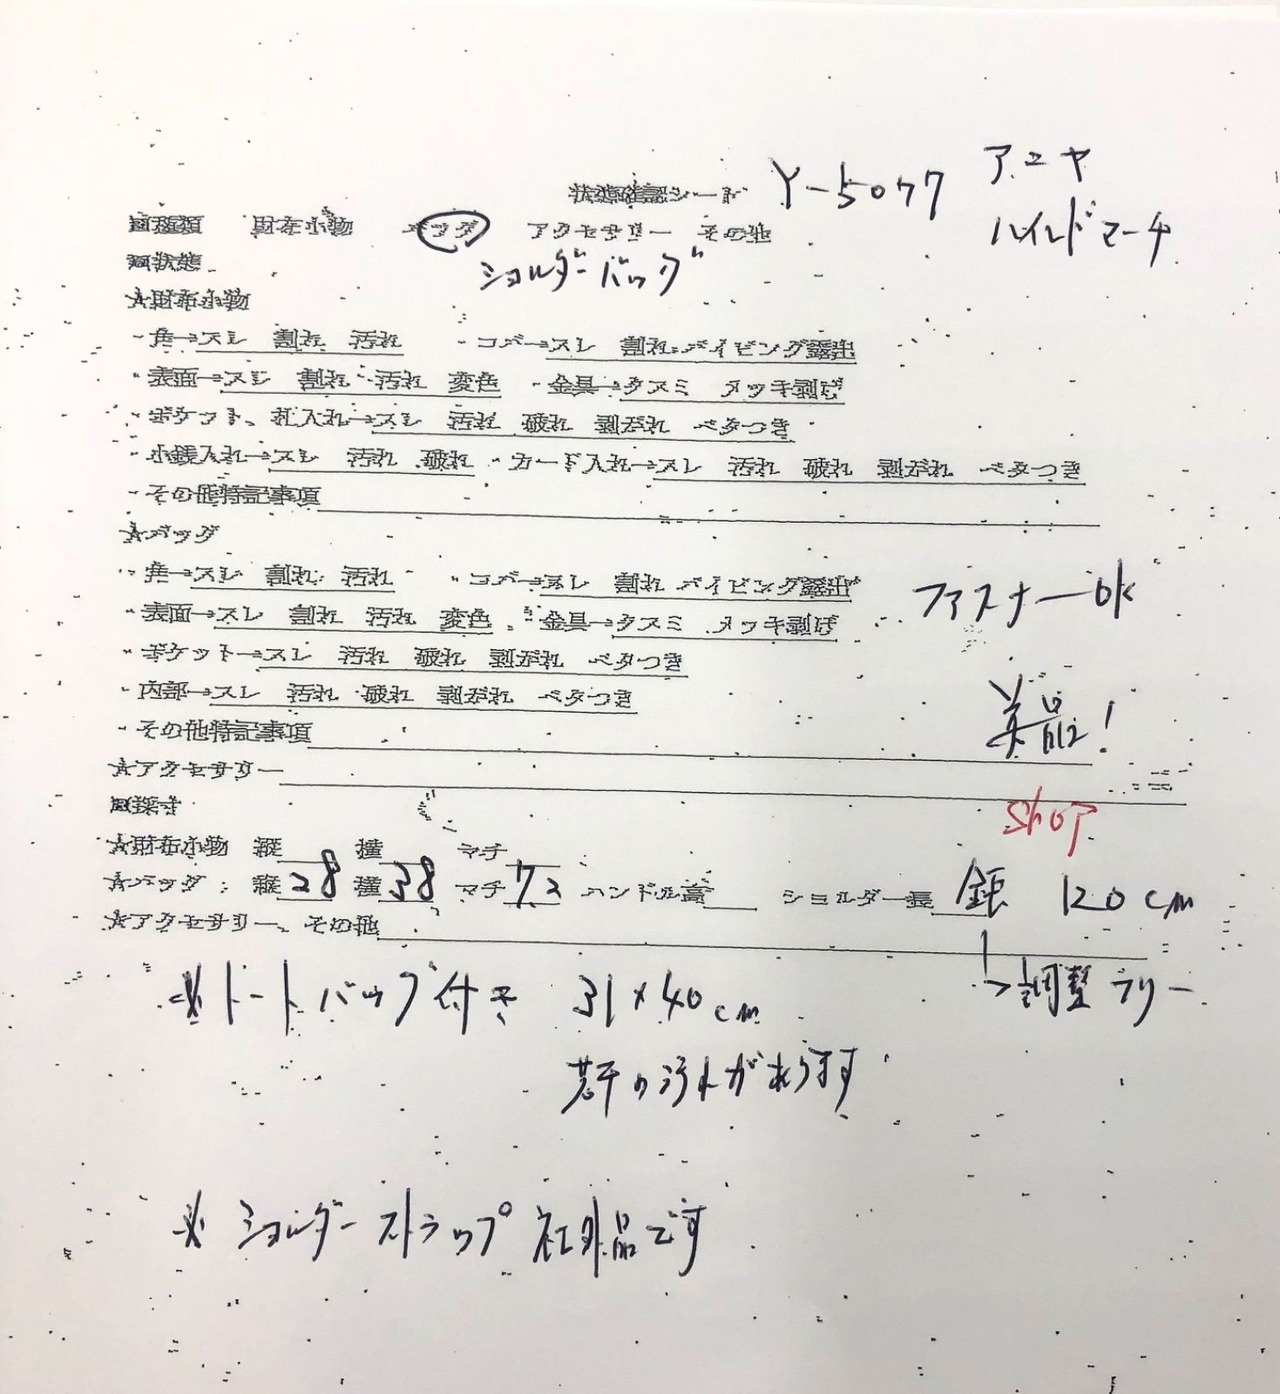 状態確認シート Y-5077 アニヤ
ハイルドマーチ
■種類 財布小物 バッグ アクセサリー その他
ショルダーバッグ
■状態
★財布小物
・角→スレ 割れ 汚れ ・コバ→スレ 割れ パイピング露出
・表面→スレ 割れ 汚れ 変色 ・金具→クスミ メッキ剥げ
・ポケット、札入れ→スレ 汚れ 破れ 剥がれ ベタつき
・小銭入れ→スレ 汚れ 破れ ・カード入れ→スレ 汚れ 破れ 剥がれ ベタつき
・その他特記事項
★バッグ
・角→スレ 割れ 汚れ ・コバ→スレ 割れ パイピング露出
ファスナーok
・表面→スレ 割れ 汚れ 変色 ・金具→クスミ メッキ剥げ
・ポケット→スレ 汚れ 破れ 剥がれ ベタつき
・内部→スレ 汚れ 破れ 剥がれ ベタつき
美品!
・その他特記事項
★アクセサリー
■採寸
shop
★財布小物 縦 横 マチ
★バッグ: 縦28 横38 マチ ハンドル高 ショルダー長 120cm
→調整フリー
★アクセサリー、その他
※トートバッグ付き 31×40cm
若干の汚れがあります
※ショルダーストラップ社外品です